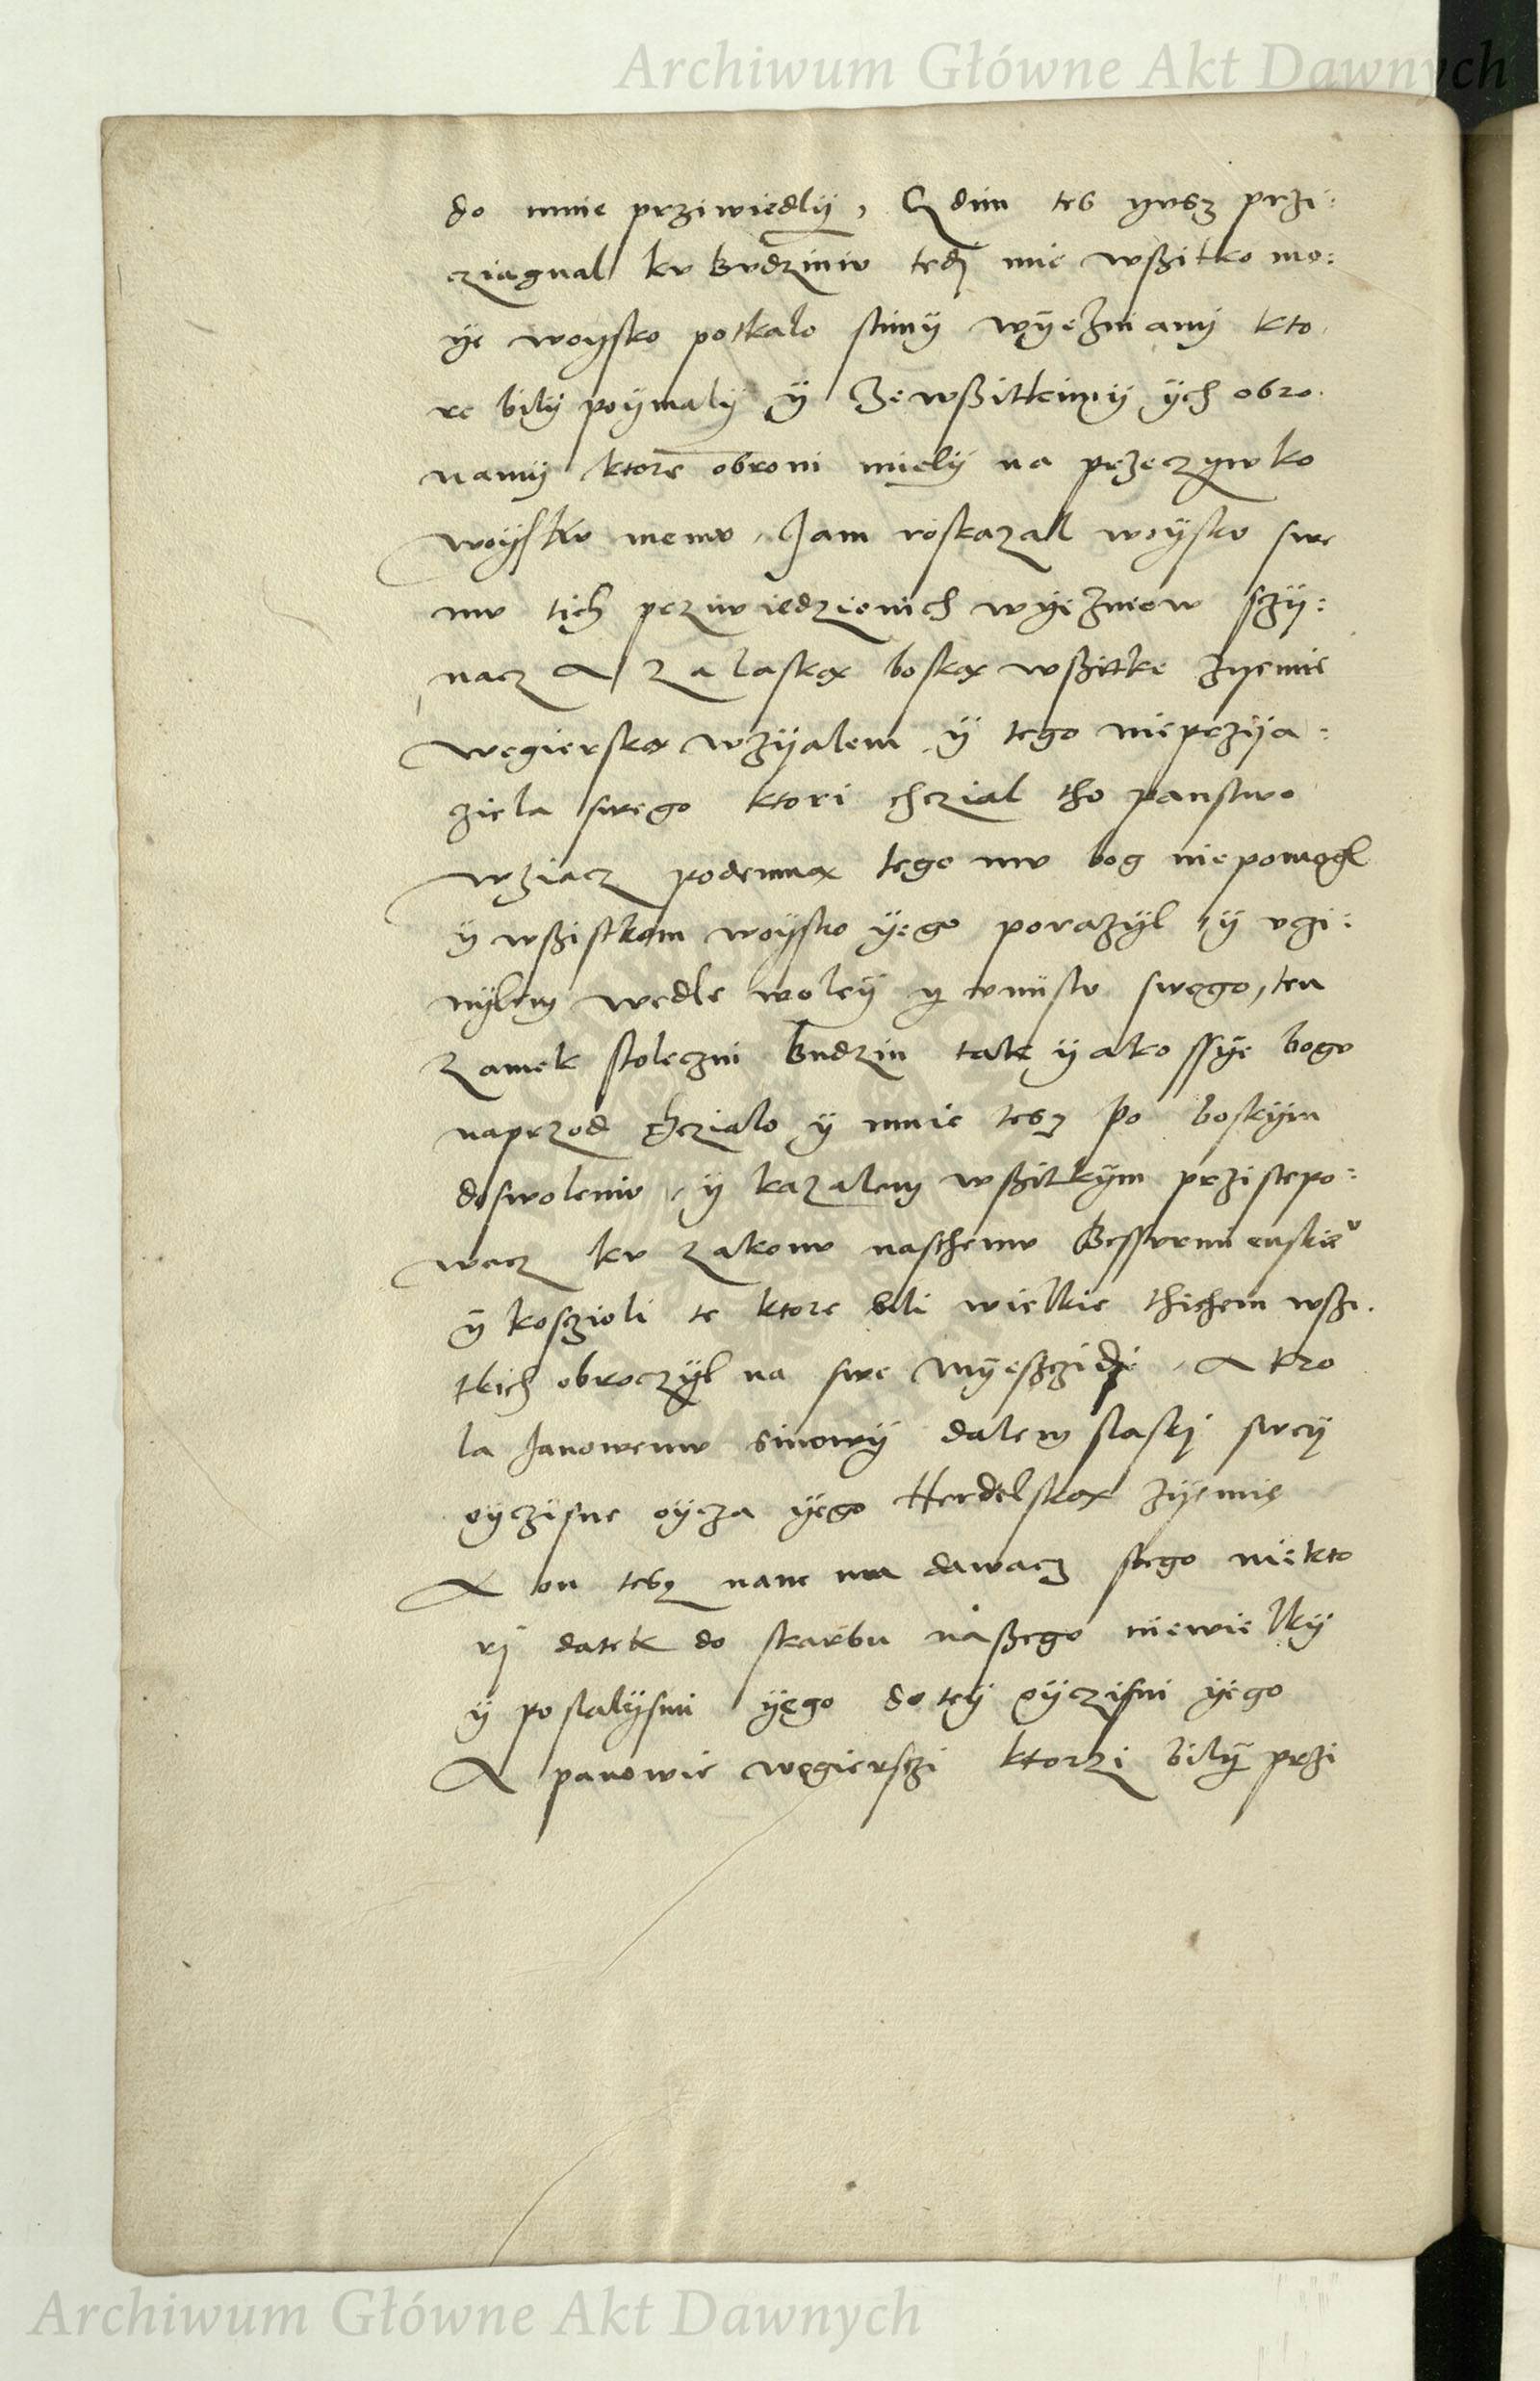 Archiwum Główne Akt Dawnych
do mnie prziwiedlÿ, Gdim tes yusz przi:
cziagnal ku Budziniu tedj mie wßitko mo:
ÿe woysko potkalo stimÿ wÿeznami kto
re bilÿ poÿmalÿ ÿ zewßitkimÿ ÿch obro.
namÿ ktore obroni mielÿ na przeczywko
woÿsku memu, Jam roskazal woÿsku swe
mu tich prziwiedzionich wÿeznow sczÿ:
nacz A za laską boską wßitke zyemie
wegierską wzÿalem ÿ tego nieprzÿa:
ziela swego ktori chczial tho panstwo
wziacz podemną tego mu bog niepomogl
ÿ wßistkom woÿsko ÿego porazÿl ÿ uczi:
nÿlem wedle woleÿ ÿ umÿslu swego, ten
zamek stoleczni Budzin tak ÿako ssÿe bogu
naprzod chczialo ÿ mnie tesz po boskÿm
doswoleniu, ÿ kazalem wßitkÿm przistepo:
wacz ku zakonu naschemu Bessurmienskieu
ÿ kosczioli te ktore bili wielkie thichem wßi.
tkich obroczÿl na swe mÿesczidi, A kro
la Janowemu sinowÿ dalem slaskj sweÿ
oÿczisne oÿcza ÿego Herdelską zÿemię
A on tesz nam ma dawacz stego niekto
rj datek do skarbu naßego niewielkÿ
ÿ poslalÿsmi ÿego do teÿ oÿczisni ÿego
A panowie węgiersczi ktorzi bilÿ przi
Archiwum Główne Akt Dawnych